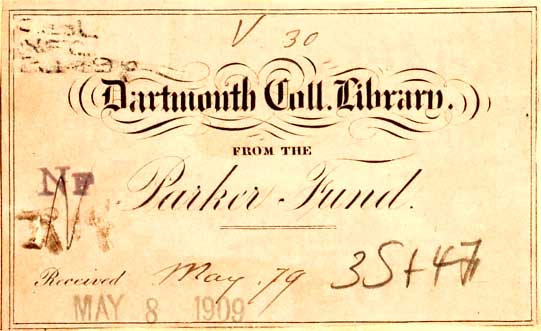 V 30
Dartmouth Coll. Library.
FROM THE
NF
Parker Fund.
Received May. 79
MAY 8 1909